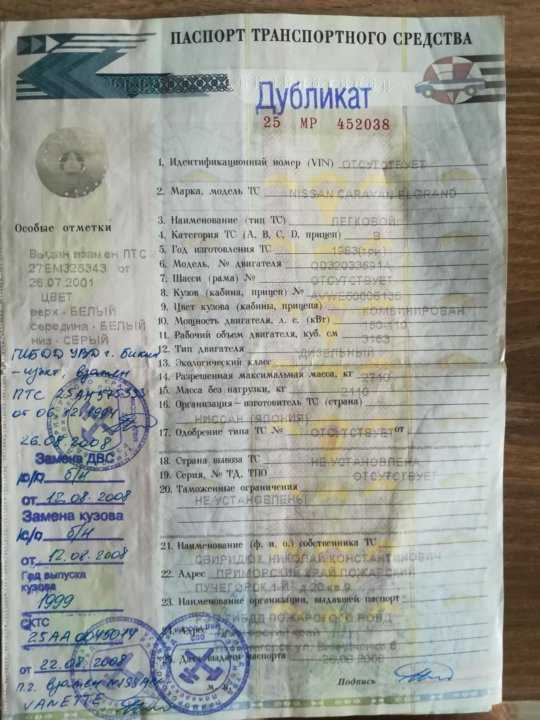 ПАСПОРТ ТРАНСПОРТНОГО СРЕДСТВА
Дубликат
25 МР 452038
1. Идентификационный номер (VIN) ОТСУТСТВУЕТ
2. Марка, модель ТС NISSAN CARAVAN ELGRAND
3. Наименование (тип ТС) ЛЕГКОВОЙ
4. Категория ТС (А, В, С, D, прицеп) В
5. Год изготовления ТС
6. Модель, № двигателя QD32033691A
7. Шасси (рама) № ОТСУТСТВУЕТ
8. Кузов (кабина, прицеп) №
9. Цвет кузова (кабины, прицепа) КОМБИНИРОВАН
10. Мощность двигателя, л. с. (кВт)
11. Рабочий объем двигателя, куб. см 3153
12. Тип двигателя ДИЗЕЛЬНЫЙ
13. Экологический класс
14. Разрешенная максимальная масса, кг 2710
15. Масса без нагрузки, кг 2110
16. Организация-изготовитель ТС (страна)
НИССАН (ЯПОНИЯ)
17. Одобрение типа ТС № ОТСУТСТВУЕТ от
18. Страна вывоза ТС НЕ УСТАНОВЛЕНА
19. Серия, № ТД, ТПО ОТСУТСТВУЕТ
20. Таможенные ограничения
НЕ УСТАНОВЛЕНЫ
21. Наименование (ф. и. о.) собственника ТС
НИКОЛАЙ КОНСТАНТИНОВИЧ
22. Адрес ПРИМОРСКИЙ КРАЙ ПОЖАРСКИЙ
23. Наименование организации, выдавшей паспорт
ПОЖАРСКОГО РОВД
24. Адрес
25. Дата выдачи паспорта
Подпись
Особые отметки
Выдан взамен ПТС
27ЕМ325343 от
26.07.2001
ЦВЕТ
верх - БЕЛЫЙ
середина - БЕЛЫЙ
низ - СЕРЫЙ
взамен
ПТС
26.08.2008
Замена ДВС
б/н
от 12.08.2008
Замена кузова
б/н
от 12.08.2008
Год выпуска
кузова
1999
СКТС
25АА
от 22.08.2008
взамен NISSAN
VANETTE